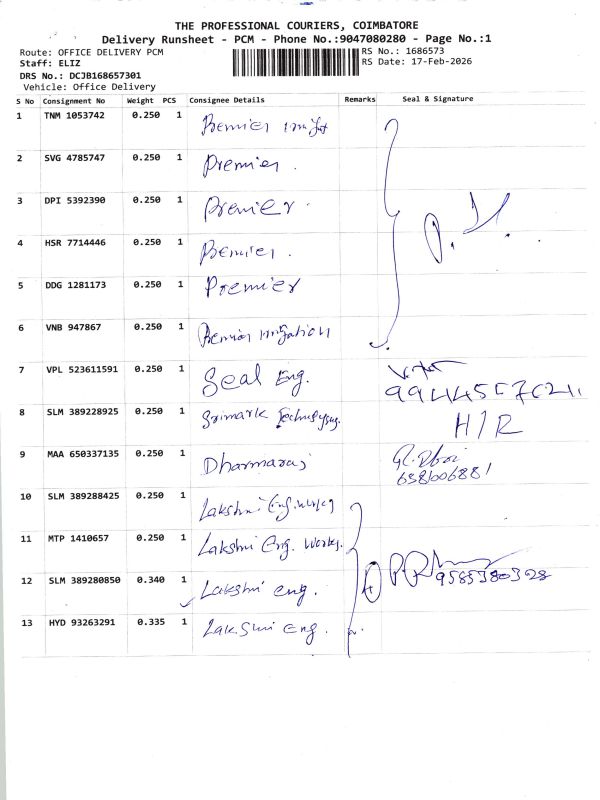 THE PROFESSIONAL COURIERS, COIMBATORE
Delivery Runsheet - PCM - Phone No.:9047080280 - Page No.:1
Route: OFFICE DELIVERY PCM
RS No.: 1686573
Staff: ELIZ
RS Date: 17-Feb-2026
DRS No.: DCJB168657301
Vehicle: Office Delivery
S No Consignment No Weight PCS Consignee Details Remarks Seal & Signature
1 TNM 1053742 0.250 1 Premier
2 SVG 4785747 0.250 1 Premier .
3 DPI 5392390 0.250 1 Premier .
4 HSR 7714446 0.250 1 Premier .
5 DDG 1281173 0.250 1 Premier
6 VNB 947867 0.250 1 Premier Irrigation
7 VPL 523611591 0.250 1 Seal Eng.
8 SLM 389228925 0.250 1 Srimark H/R
9 MAA 650337135 0.250 1 Dharmaraj
10 SLM 389288425 0.250 1 Lakshmi Eng. Works
11 MTP 1410657 0.250 1 Lakshmi Eng. Works.
12 SLM 389280850 0.340 1 Lakshmi eng. 9585380328
13 HYD 93263291 0.335 1 Lakshmi Eng.